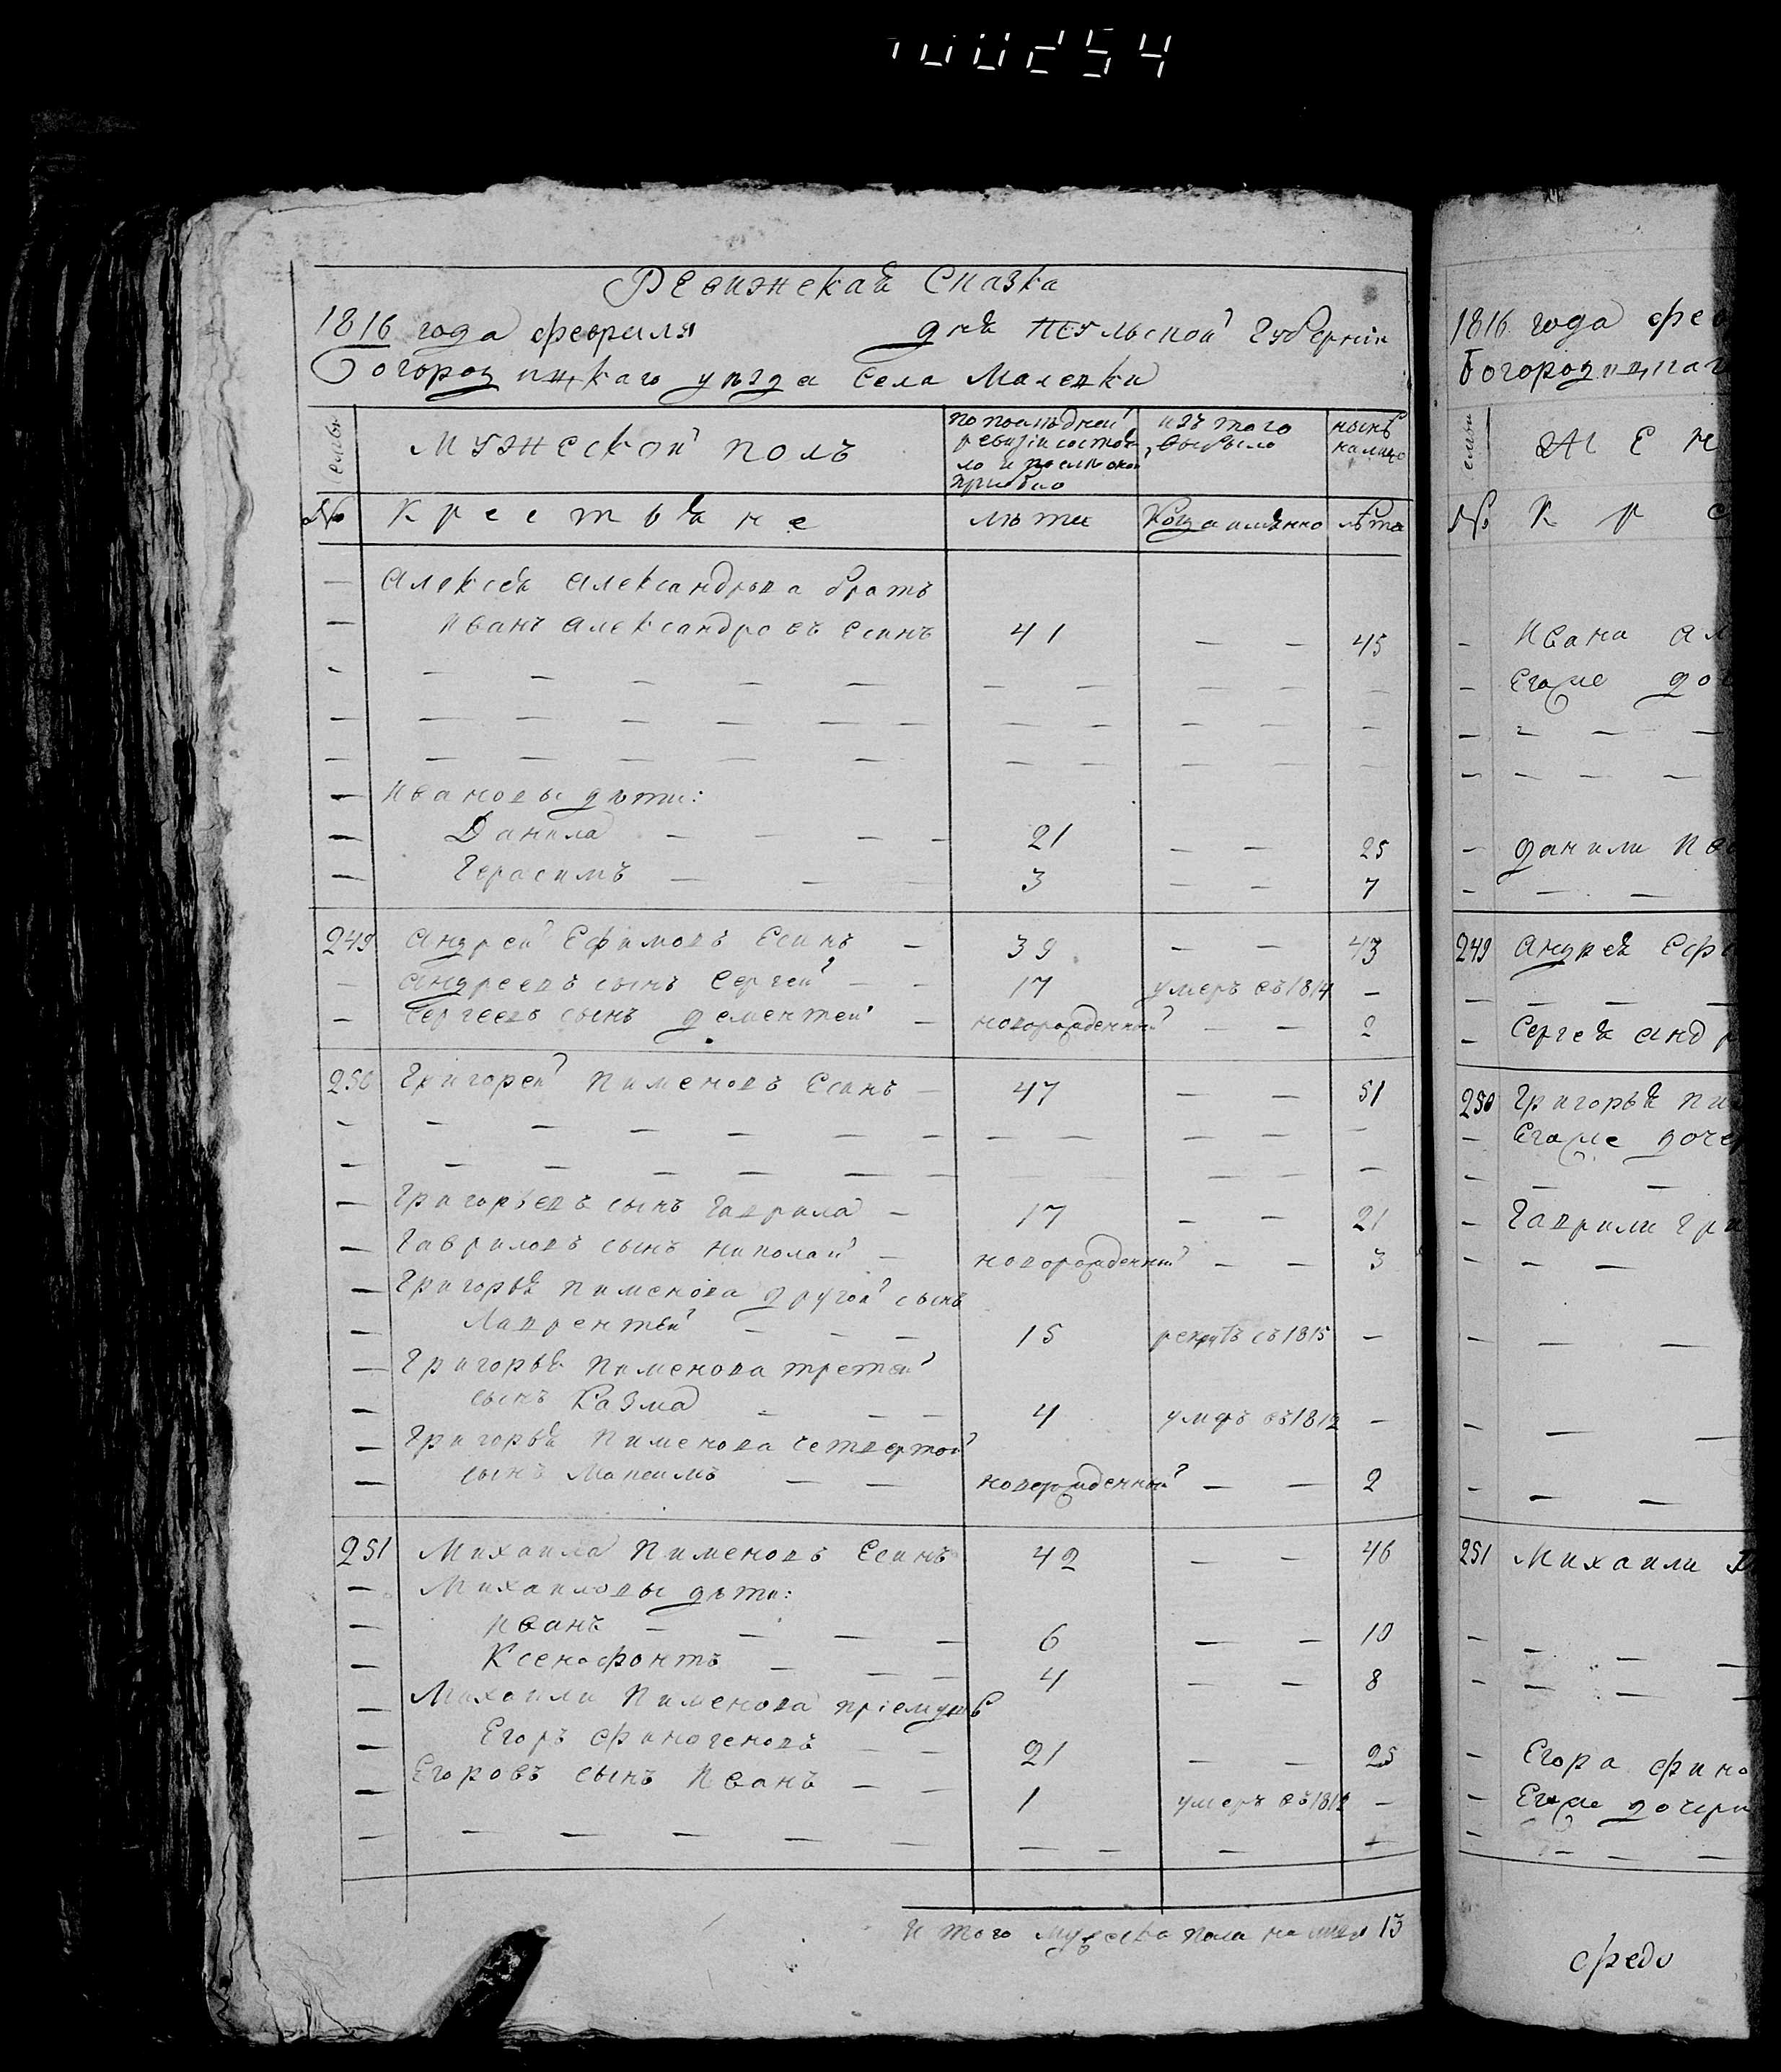 100254
Ревижская Сказка
1816 года февраля дня Тульской Губернiи
Богородицкаго уѣзда Села Малевки
семьи
Мужеской полъ
по последней ревизiи состояло и после оной прибыло
изъ того выбыло
нынѣ на лицо
№ Крестьяне лѣта Когда имянно лѣта
— Алексея Александрова братъ
— Иванъ Александровъ Есинъ 41 — — 45
— Ивановы дѣти:
— Данила — — — — 21 — — 25
— Герасимъ — — — 3 — — 7
249 Андрей Ефимовъ Есинъ — 39 — — 43
— Андреевъ сынъ Сергей — — 17 умеръ въ 1814 —
— Сергеевъ сынъ дементей — новорожденный — — 2
250 Григорей Пименовъ Есинъ — 47 — — 51
— Григорьевъ сынъ Гаврила — 17 — — 21
— Гавриловъ сынъ Николай — новорожденный — — 3
— Григорья Пименова другой сынъ
— Лаврентей — — — 15 рекрутъ съ 1815 —
— Григорья Пименова третей
— сынъ Казма — — — 4 умеръ въ 1812 —
— Григорья Пименова четвертой
— сынъ Максимъ — — новорожденный — — 2
251 Михаила Пименовъ Есинъ 42 — — 46
— Михаиловы дѣти:
— Иванъ — — — — 6 — — 10
— Ксенофонтъ — — — 4 — — 8
— Михаилы Пименова прiемышъ
— Егоръ Финогеновъ — — 21 — — 25
— Егоровъ сынъ Иванъ — — 1 умеръ въ 1812 —
И того мужеска пола на лицо 13
1816 года фев
Богородицкаг
семьи
Жен
№ К р
— Ивана Ал
— Егоже доч
— данилы Ива
249 Андрея Ефи
— Сергея Андр
250 Григорья Пи
— Егоже дочер
— Гаврилы Гри
251 Михаилы П
— Егора Фино
— Егоже дочери
Федо